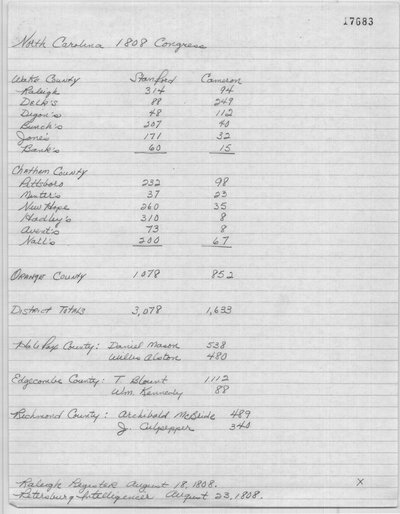 17683
North Carolina 1808 Congress
Wake County Stanford Cameron
Raleigh 314 94
Delk's 88 249
Digon's 48 112
Bunch's 207 40
Jones' 171 32
Bank's 60 15
Chatham County
Pittsboro 232 98
Minter's 37 23
New Hope 260 35
Hadley's 310 8
Avent's 73 8
Nall's 200 67
Orange County 1,078 852
District Totals 3,078 1,633
Halifax County: Daniel Mason 538
Willis Alston 480
Edgecombe County: T. Blount 1112
Wm. Kennedy 88
Richmond County: Archibald McBride 489
J. Culpepper 340
Raleigh Register August 18, 1808.
Petersburg Intelligencer August 23, 1808.
X